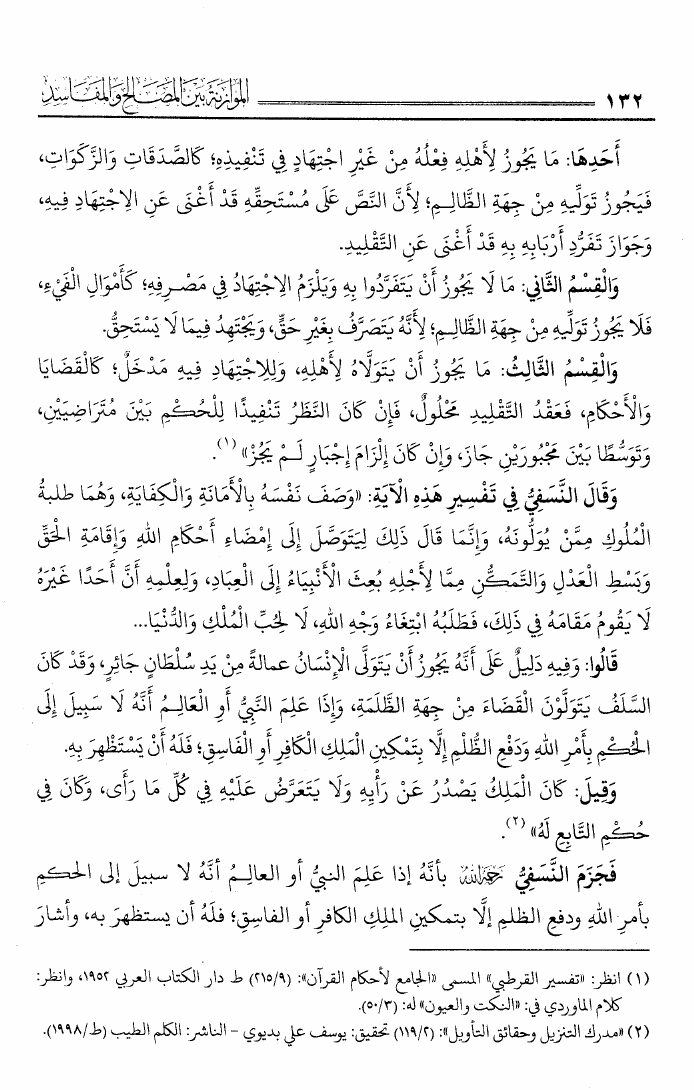 ١٣٢ الموازنة بين المصالح والمفاسد
أَحَدِهَا: مَا يَجُوزُ لِأَهْلِهِ فِعْلُهُ مِنْ غَيْرِ اجْتِهَادٍ فِي تَنْفِيذِهِ؛ كَالصَّدَقَاتِ وَالزَّكَوَاتِ،
فَيَجُوزُ تَوَلِّيهِ مِنْ جِهَةِ الظَّالِمِ؛ لِأَنَّ النَّصَّ عَلَى مُسْتَحِقِّهِ قَدْ أَغْنَى عَنِ الِاجْتِهَادِ فِيهِ،
وَجَوَازَ تَفَرُّدِ أَرْبَابِهِ بِهِ قَدْ أَغْنَى عَنِ التَّقْلِيدِ.
وَالْقِسْمُ الثَّانِي: مَا لَا يَجُوزُ أَنْ يَتَفَرَّدُوا بِهِ وَيَلْزَمُ الِاجْتِهَادُ فِي مَصْرِفِهِ؛ كَأَمْوَالِ الْفَيْءِ،
فَلَا يَجُوزُ تَوَلِّيهِ مِنْ جِهَةِ الظَّالِمِ؛ لِأَنَّهُ يَتَصَرَّفُ بِغَيْرِ حَقٍّ، وَيَجْتَهِدُ فِيمَا لَا يَسْتَحِقُّ.
وَالْقِسْمُ الثَّالِثُ: مَا يَجُوزُ أَنْ يَتَوَلَّاهُ لِأَهْلِهِ، وَلِلِاجْتِهَادِ فِيهِ مَدْخَلٌ؛ كَالْقَضَايَا
وَالْأَحْكَامِ، فَعَقْدُ التَّقْلِيدِ مَحْلُولٌ، فَإِنْ كَانَ النَّظَرُ تَنْفِيذًا لِلْحُكْمِ بَيْنَ مُتَرَاضِيَيْنِ،
وَتَوَسُّطًا بَيْنَ مَجْبُورَيْنِ جَازَ، وَإِنْ كَانَ إِلْزَامَ إِجْبَارٍ لَمْ يَجُزْ» (١).
وَقَالَ النَّسَفِيُّ فِي تَفْسِيرِ هَذِهِ الْآيَةِ: «وَصَفَ نَفْسَهُ بِالْأَمَانَةِ وَالْكِفَايَةِ، وَهُمَا طلبةُ
الْمُلُوكِ مِمَّنْ يُوَلُّونَهُ، وَإِنَّمَا قَالَ ذَلِكَ لِيَتَوَصَّلَ إِلَى إِمْضَاءِ أَحْكَامِ اللهِ وَإِقَامَةِ الْحَقِّ
وَبَسْطِ الْعَدْلِ وَالتَّمَكُّنِ مِمَّا لِأَجْلِهِ بُعِثَ الْأَنْبِيَاءُ إِلَى الْعِبَادِ، وَلِعِلْمِهِ أَنَّ أَحَدًا غَيْرَهُ
لَا يَقُومُ مَقَامَهُ فِي ذَلِكَ، فَطَلَبُهُ ابْتِغَاءُ وَجْهِ اللهِ، لَا لِحُبِّ الْمُلْكِ وَالدُّنْيَا...
قَالُوا: وَفِيهِ دَلِيلٌ عَلَى أَنَّهُ يَجُوزُ أَنْ يَتَوَلَّى الْإِنْسَانُ عمالةً مِنْ يَدِ سُلْطَانٍ جَائِرٍ، وَقَدْ كَانَ
السَّلَفُ يَتَوَلَّوْنَ الْقَضَاءَ مِنْ جِهَةِ الظَّلَمَةِ، وَإِذَا عَلِمَ النَّبِيُّ أَوِ الْعَالِمُ أَنَّهُ لَا سَبِيلَ إِلَى
الْحُكْمِ بِأَمْرِ اللهِ وَدَفْعِ الظُّلْمِ إِلَّا بِتَمْكِينِ الْمَلِكِ الْكَافِرِ أَوِ الْفَاسِقِ؛ فَلَهُ أَنْ يَسْتَظْهِرَ بِهِ.
وَقِيلَ: كَانَ الْمَلِكُ يَصْدُرُ عَنْ رَأْيِهِ وَلَا يَتَعَرَّضُ عَلَيْهِ فِي كُلِّ مَا رَأَى، وَكَانَ فِي
حُكْمِ التَّابِعِ لَهُ» (٢).
فَجَزَمَ النَّسَفِيُّ رحمه الله بأنَّهُ إذا عَلِمَ النبيُّ أو العالِمُ أنَّهُ لا سبيلَ إلى الحكمِ
بأمرِ اللهِ ودفعِ الظلمِ إلَّا بتمكينِ الملِكِ الكافرِ أو الفاسقِ؛ فلَهُ أن يستظهرَ به، وأشارَ
(١) انظر: «تفسير القرطبي» المسمى «الجامع لأحكام القرآن»: (٢١٥/٩) ط دار الكتاب العربي ١٩٥٢، وانظر:
كلام الماوردي في: «النكت والعيون» له: (٥٠/٣).
(٢) «مدرك التنزيل وحقائق التأويل»: (١١٩/٢) تحقيق: يوسف علي بديوي - الناشر: الكلم الطيب (ط/١٩٩٨).